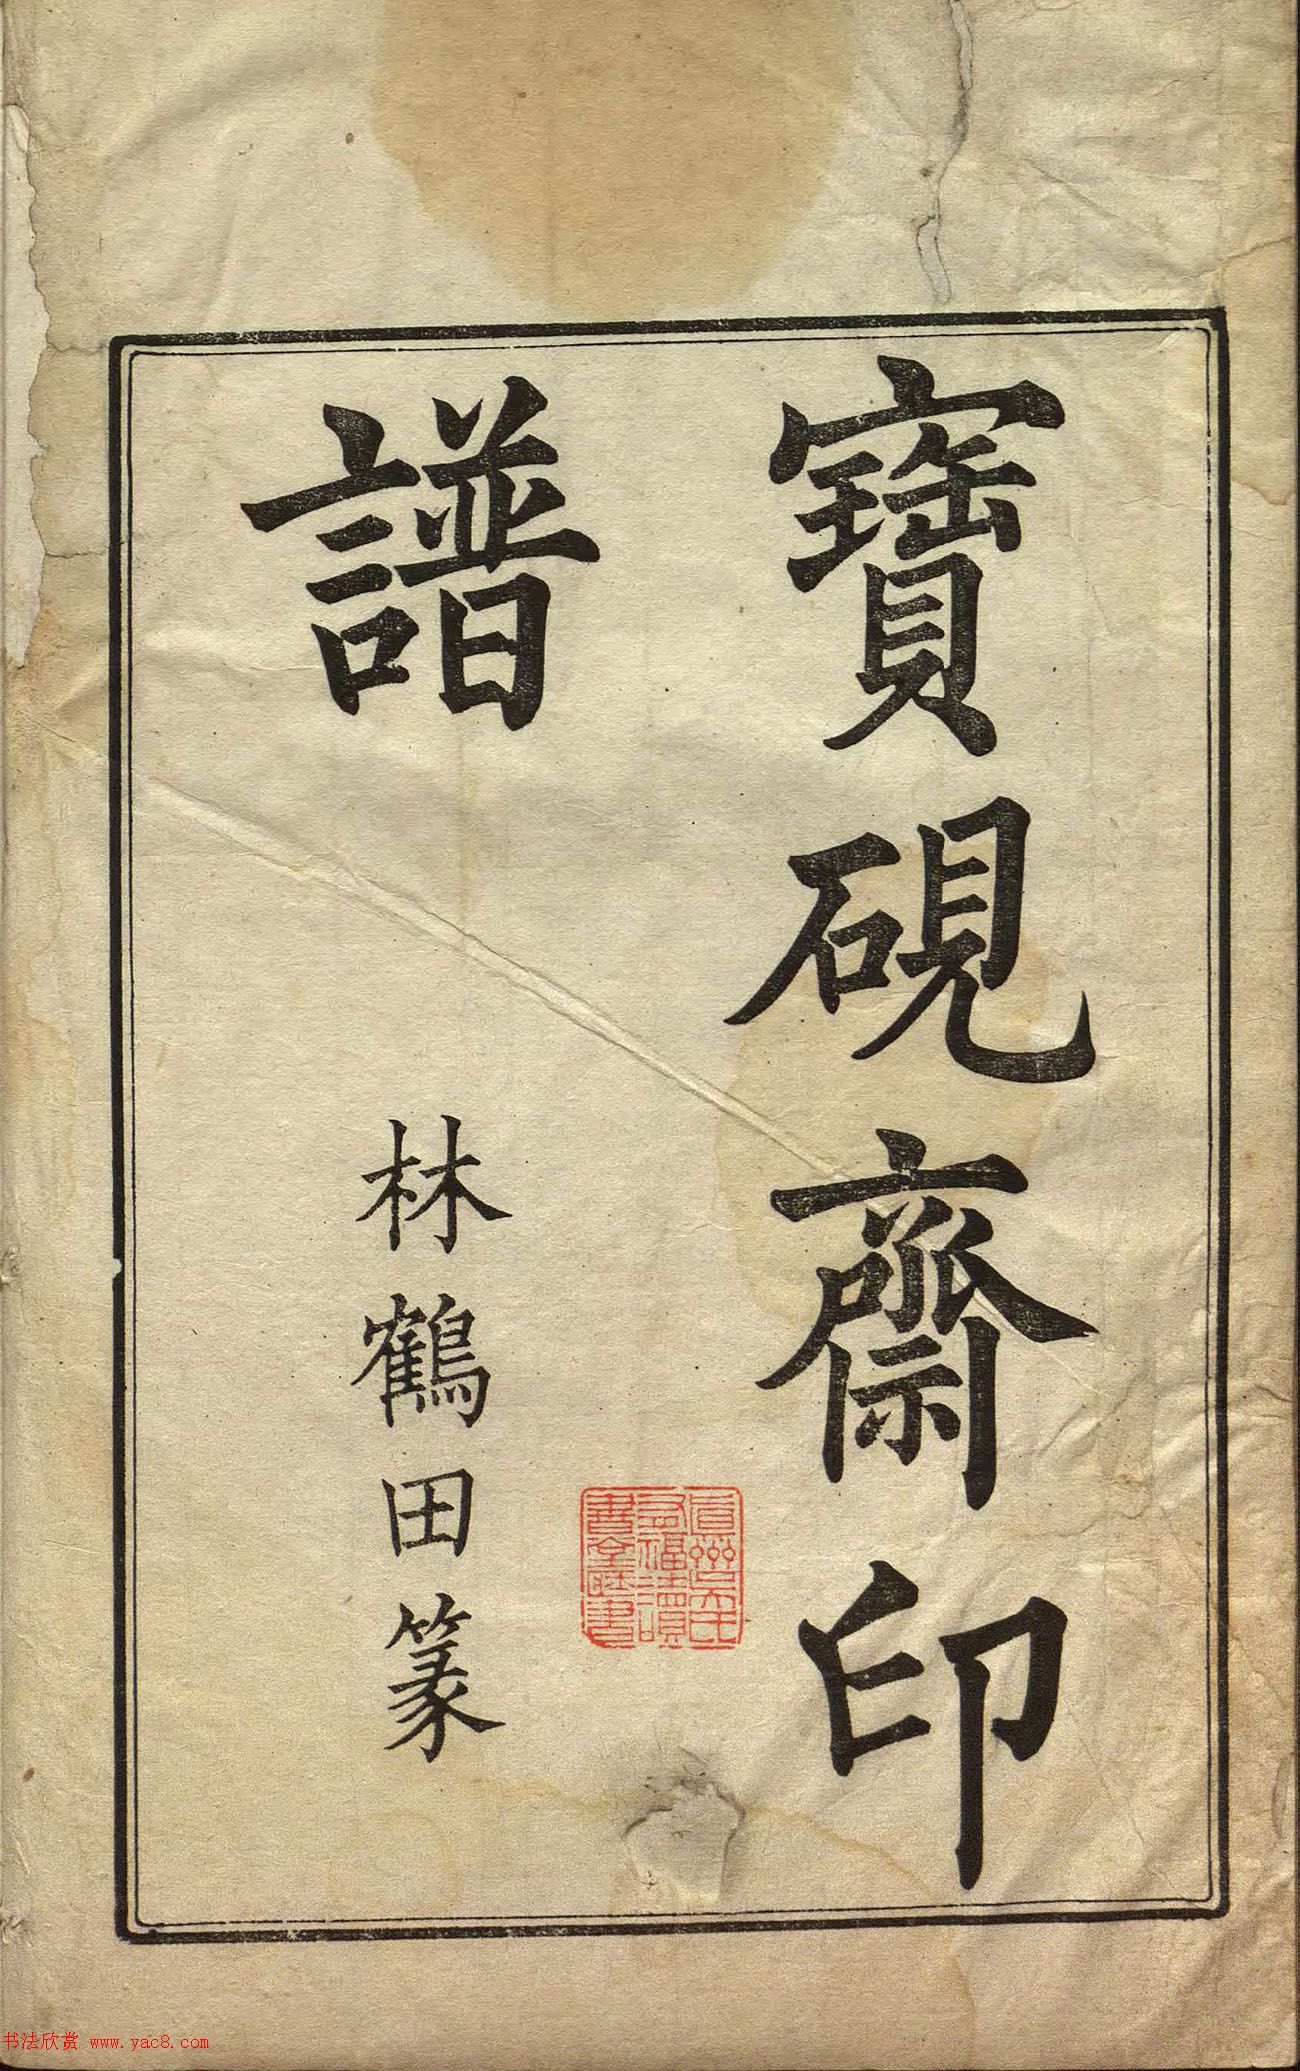 寶硯齋印
譜
林鶴田篆
书法欣赏 www.yac8.com